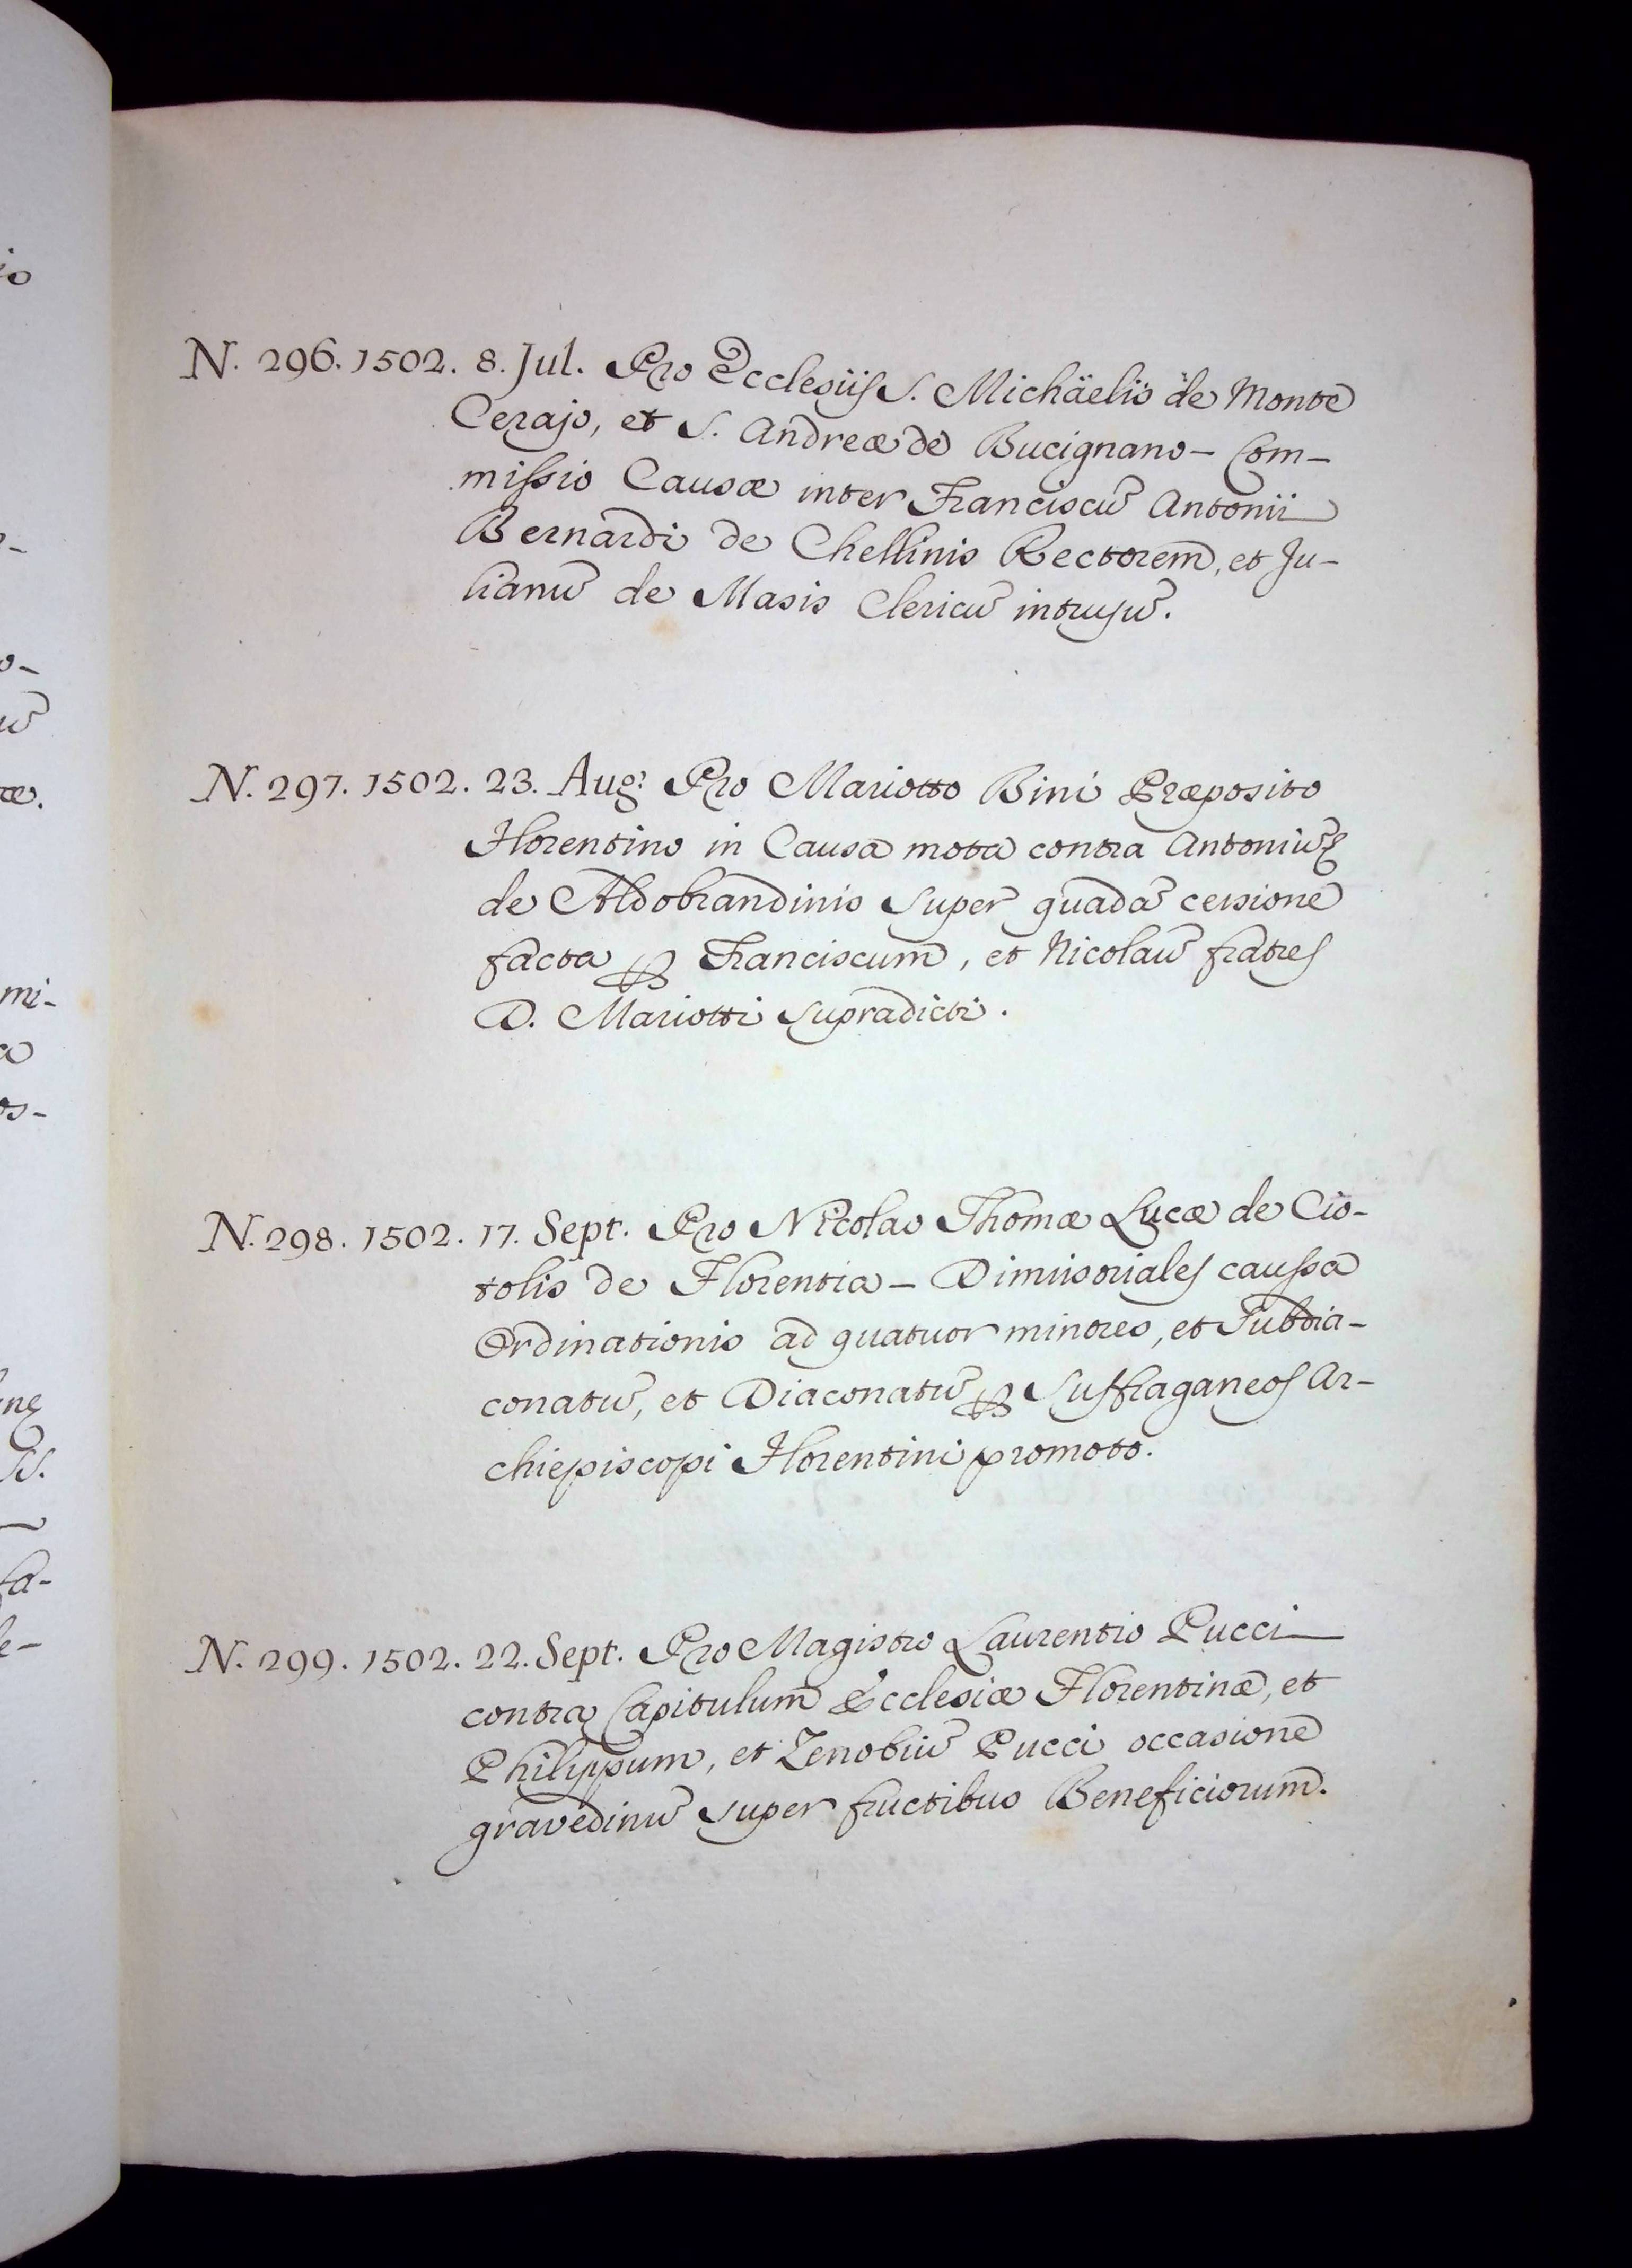 N. 296. 1502. 8. Jul. Pro Ecclesiis S. Michäelis de Monte
Cerajo, et S. Andreæ de Bucignano - Com-
missio Causæ inter Franciscū Antonii
Bernardi de Chellinis Rectorem, et Ju-
lianū de Masis Clericū intrusū.
N. 297. 1502. 23. Aug: Pro Mariotto Bini Præposito
Florentino in Causa mota contra Antonium
de Aldobrandinis super quadā cessione
facta p Franciscum, et Nicolaū fratres
D. Mariotti supradicti.
N. 298. 1502. 17. Sept. Pro Nicolao Thomæ Lucæ de Cio-
tolis de Florentia - Dimissoriales caussa
Ordinationis ad quatuor minores, et Subdia-
conatū, et Diaconatū p Suffraganeos Ar-
chiepiscopi Florentini promoto.
N. 299. 1502. 22. Sept. Pro Magistro Laurentio Pucci
contra Capitulum Ecclesiæ Florentinæ, et
Philippum, et Zenobiū Pucci occasione
gravedinū super fructibus Beneficiorum.